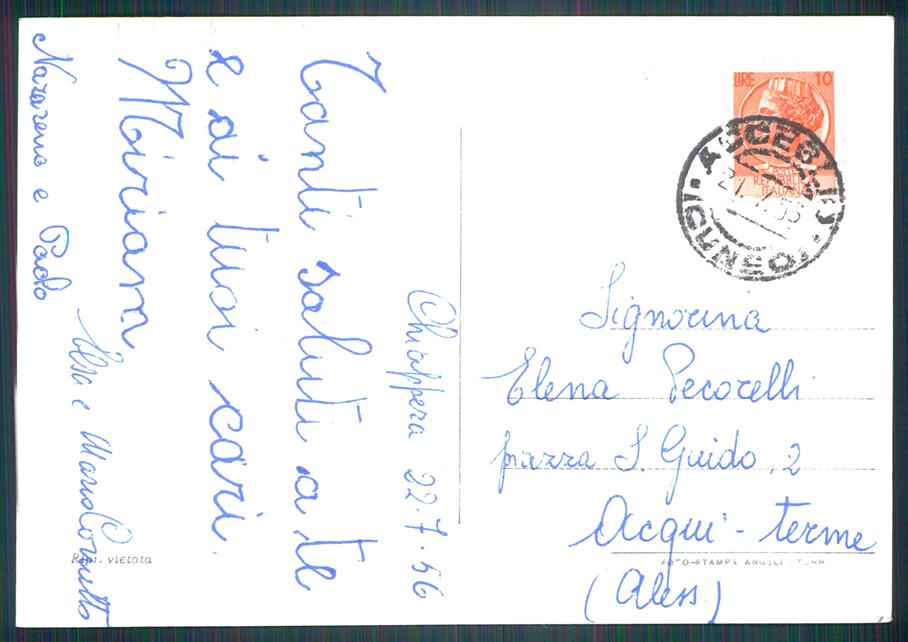 Chiappera 22.7.56
Tanti saluti a te
e ai tuoi cari
Miriam
Elsa e
Nazareno e Paolo
LIRE 10
POSTE
REPUBBLICA
ITALIANA
ACCEGLIO (CUNEO)
Signorina
Elena Pecorelli
piazza S. Guido, 2
Acqui - terme
(Aless.)
Ripr. vietata
FOTO-STAMPA ANGELI - TERNI